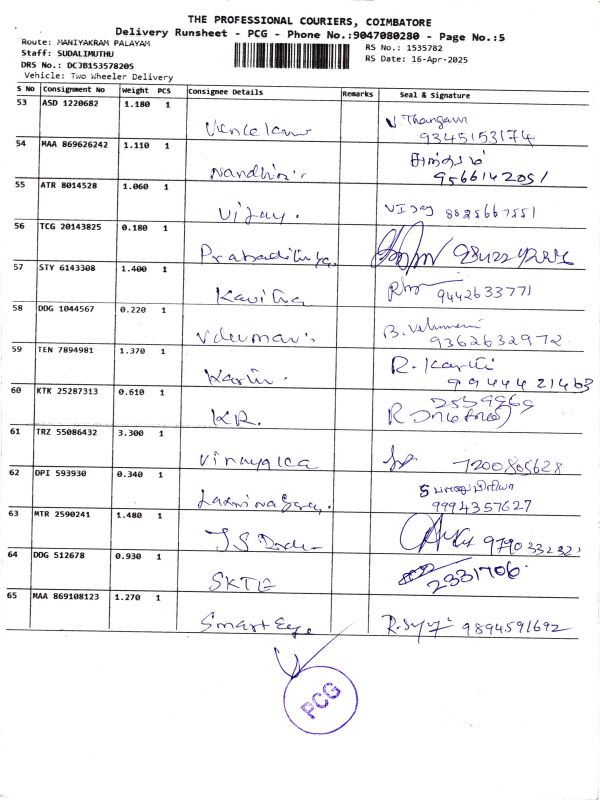 THE PROFESSIONAL COURIERS, COIMBATORE
Delivery Runsheet - PCG - Phone No.:9047080280 - Page No.:5
Route: MANIYAKRAM PALAYAM
RS No.: 1535782
Staff: SUDALIMUTHU
RS Date: 16-Apr-2025
DRS No.: DCJB153578205
Vehicle: Two Wheeler Delivery
S No Consignment No Weight PCS Consignee Details Remarks Seal & Signature
53 ASD 1220682 1.180 1 V. Thangam
9345153174
54 MAA 869626242 1.110 1 Nandhini
9566142051
55 ATR 8014528 1.060 1 Vijay. Vijay 8825667551
56 TCG 20143825 0.180 1 Prabadithya.
57 STY 6143308 1.400 1 Kavitha 9442633771
58 DDG 1044567 0.220 1
9362632972
59 TEN 7894981 1.370 1 Karthi. R. Karthi
9944421463
60 KTK 25287313 0.610 1 KR. 2539969
61 TRZ 55086432 3.300 1 Vinayaka 7200805628
62 DPI 593930 0.340 1
9994357627
63 MTR 2590241 1.480 1
64 DDG 512678 0.930 1 2331706.
65 MAA 869108123 1.270 1 Smart Eye. 9894591692
PCG